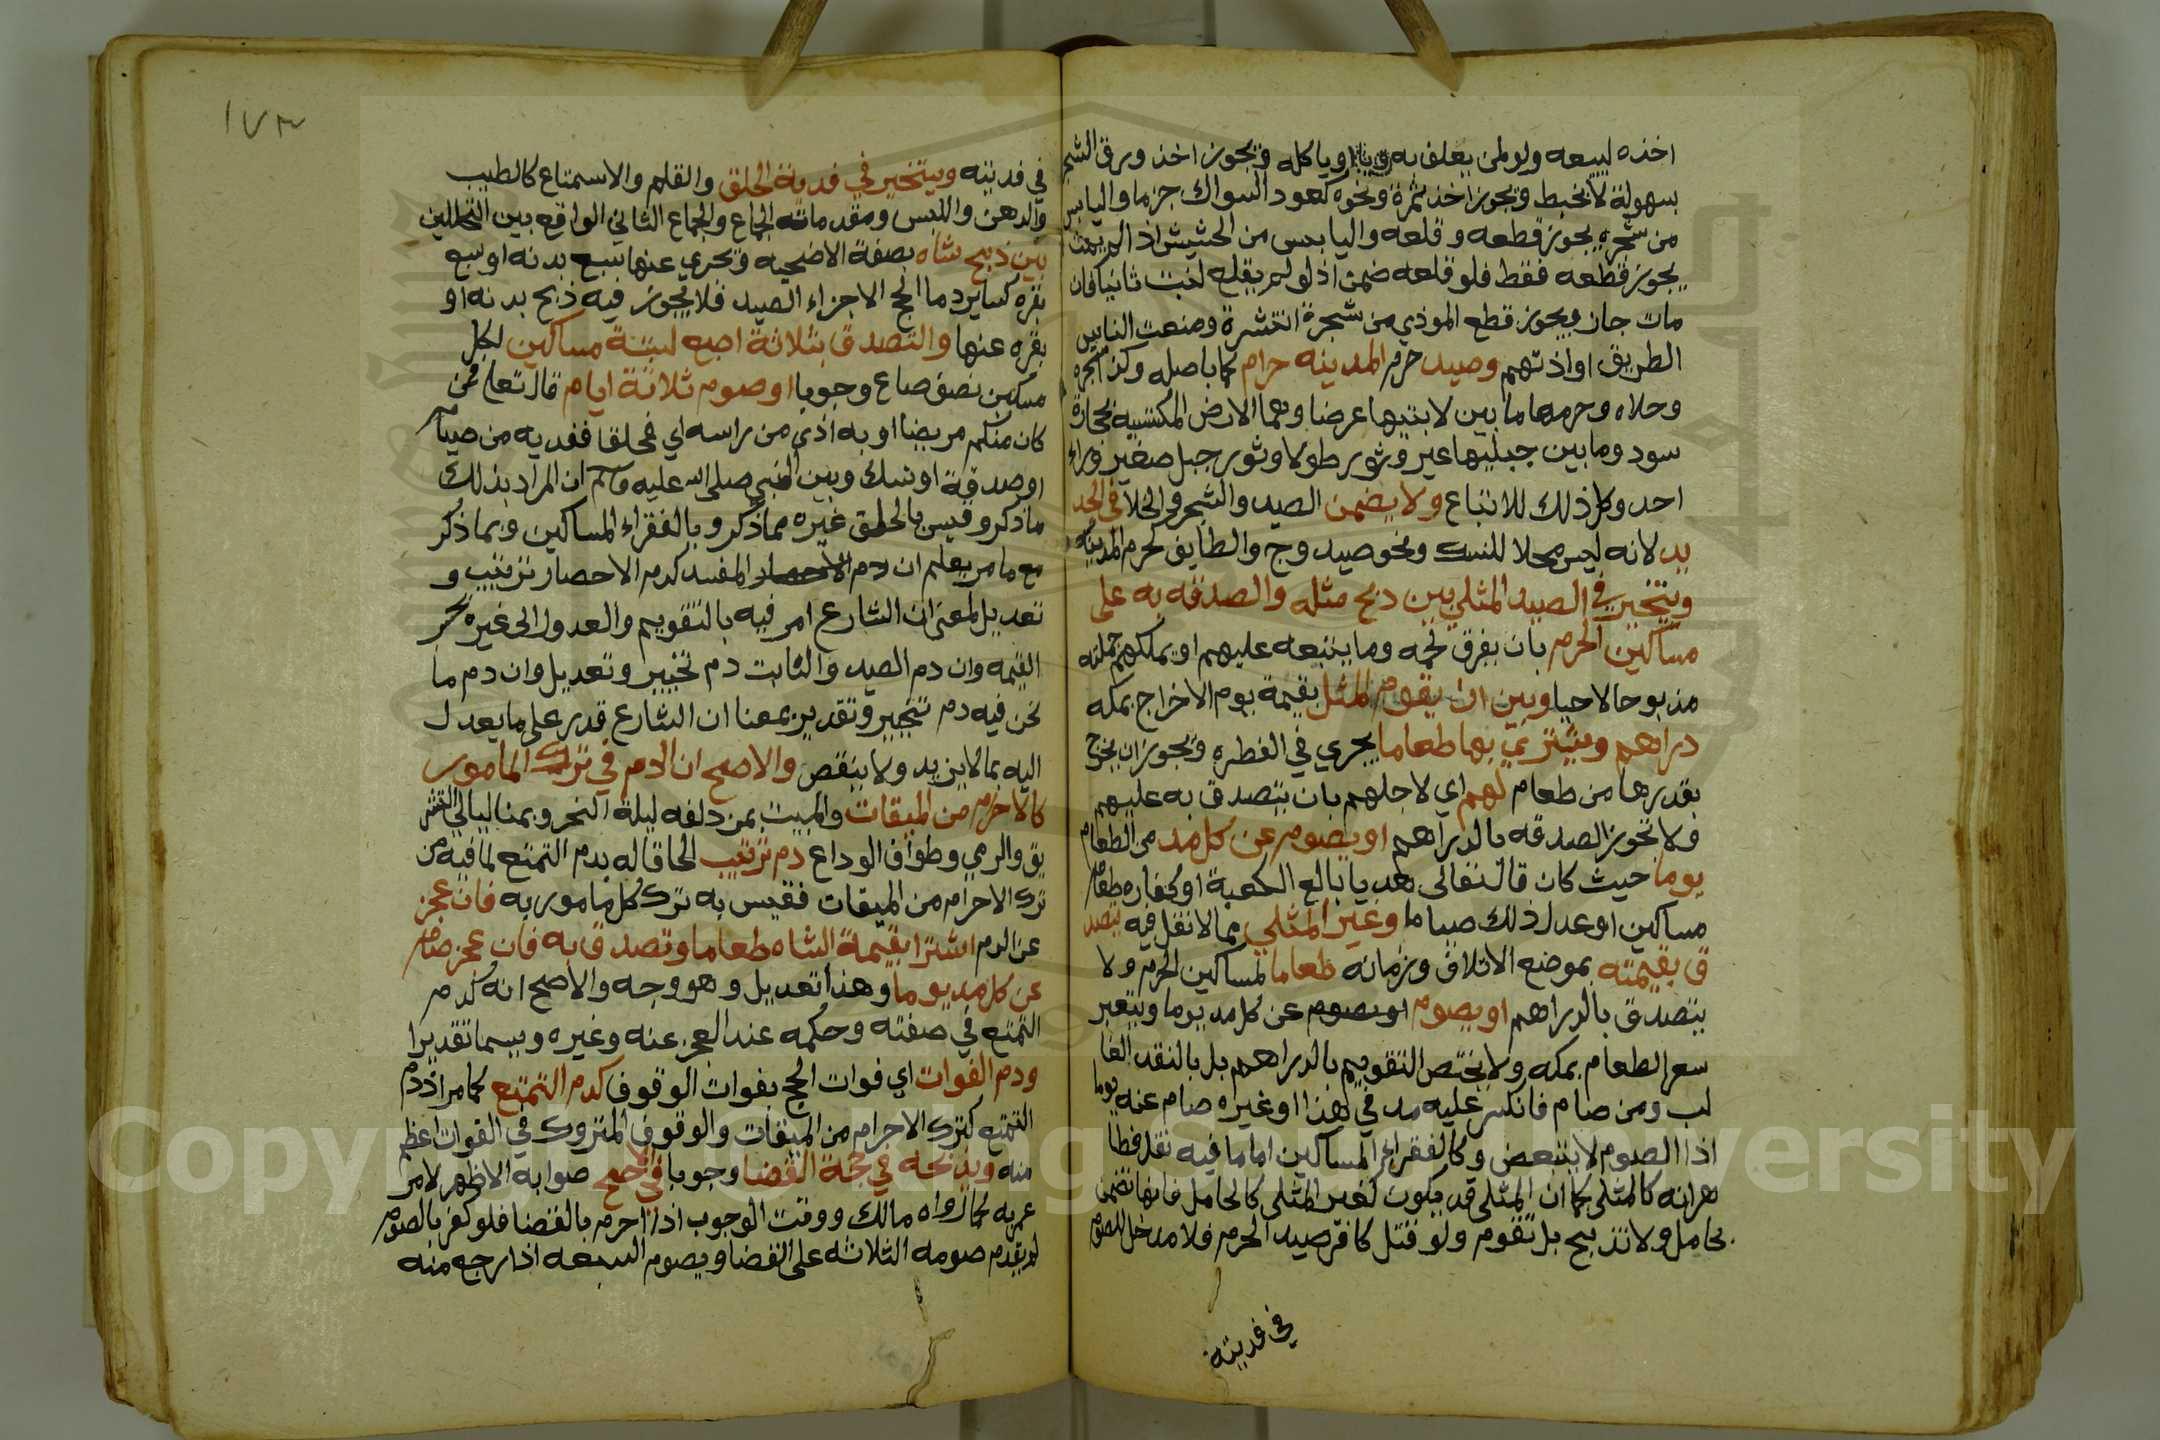 اخذه لبيعه ولو لمن يعلف به وياكله ويجوز اخذ ورق الشجر
بسهولة لا بخبط ويجوز اخذ ثمرة ونحوه كعود السواك جزما واليابس
من شجره يجوز قطعه وقلعه واليابس من الحشيش اذا لم يمت
يجوز قطعه فقط فلو قلعه ضمن اذ لو لم يقلع لنبت ثانيا فان
مات جاز ويجوز قطع الموذي من شجرة انتشرة ومنعت الناس
الطريق او اذتهم وصيد حرم المدينه حرام كما باصله وكذا شجره
وخلاه وحرمها ما بين لابتيها عرضا وهما الارض المكتسيه حجارة
سود وما بين جبليها عير وثور طولا وثور جبل صغير وراء
احد وكل ذلك للاتباع ولا يضمن الصيد والشجر والخلا في الجد
يد لانه ليس محلا للنسك ونحو صيد وج والطايف كحرم المدينه
ويتخير في الصيد المثلي بين ذبح مثله والصدقه به على
مساكين الحرم بان يفرق لحمه وما يتبعه عليهم او يملكهم جملته
مذبوحا لا حيا وبين ان يقوم المثل بقيمة يوم الاخراج بمكه
دراهم ويشتري بها طعاما يجري في الفطره ويجوز ان يخرج
بقدرها من طعام لهم اي لاجلهم بان يتصدق به عليهم
ولا تجوز الصدقه بالدراهم او يصوم عن كل مد من الطعام
يوما حيث كان قال تعالى هديا بالغ الكعبة او كفاره طعام
مساكين او عدل ذلك صياما وغير المثلي مما لا نقل فيه يتصد
ق بقيمته بموضع الاتلاف وزمانه طعاما لمساكين الحرم ولا
يتصدق بالدراهم او يصوم او يصوم عن كل مد يوما ويتعبر
سعر الطعام بمكه ولا يختص التقويم بالدراهم بل بالنقد الغا
لب ومن صام فانكسر عليه مد في هذا او غيره صام عنه يوما
اذا الصوم لا يتبعض وكالفقراء المساكين اما ما فيه نقل فظا
هر انه كالمثلي كما ان المثلي قد يكون كغير المثلي كالحامل فانها تضمن
بحامل ولا تذبح بل تقوم ولو قتل كافر صيد الحرم فلا مدخل للصوم
في فديته
١٧٣
في فديته ويتخير في فدية الحلق والقلم والاستمتاع كالطيب
والدهن واللبس ومقدماته الجماع والجماع الثاني الواقع بين التحللين
بين ذبح شاه بصفة الاضحيه ويجري عنها سبع بدنه او سبع
بقره كساير دما الحج الا جزاء الصيد فلا يجوز فيه ذبح بدنه او
بقره عنها والتصدق بثلاثة اصع لستة مساكين لكل
مسكين نصف صاع وجوبا او صوم ثلاثة ايام قال تعلى فمن
كان منكم مريضا او به اذى من راسه اي فحلق ففديه من صيام
او صدقة او نسك وبين النبي صلى الله عليه وسلم ان المراد بذلك
ما ذكر وقيس بالحلق غيره مما ذكر وبالفقراء المساكين وبما ذكر
مع ما مر يعلم ان دم الاحصار المفسد كدم الاحصار ترتيب و
تعديل لمعنى ان الشارع امر فيه بالتقويم والعدول الى غيره بحسب
القيمه وان دم الصيد والنابت دم تخيير وتعديل وان دم ما
نحن فيه دم تخيير وتقدير بمعنا ان الشارع قدر على ما يعدل
اليه بما لا يزيد ولا ينقص والاصح ان الدم في ترك المامور
كالاحرام من الميقات والمبيت بمزدلفه ليلة النحر وبمنا ليالي التشر
يق والرمي وطواف الوداع دم ترتيب الحاقا له بدم التمتع لما فيه من
ترك الاحرام من الميقات فقيس به ترك كل مامور به فان عجز
عن الدم اشترا بقيمة الشاه طعاما وتصدق به فان عجز صام
عن كل مد يوما وهذا تعديل وهو وجه والاصح انه كدم
التمتع في صفته وحكمه عند العجز عنه وغيره ويسما تقديرا
ودم الفوات اي فوات الحج بفوات الوقوف كدم التمتع كما مر اذ دم
التمتع كترك الاحرام من الميقات والوقوف المتروك في الفوات اعظم
منه ويذبحه في حجة القضا وجوبا في الاصح صوابه الاظهر لامر
عمر به كما رواه مالك ووقت الوجوب اذا احرم بالقضا فلو كفر بالصوم
لم يقدم صومه الثلاثه على القضا ويصوم السبعه اذا رجع منه
Copyright © King Saud University